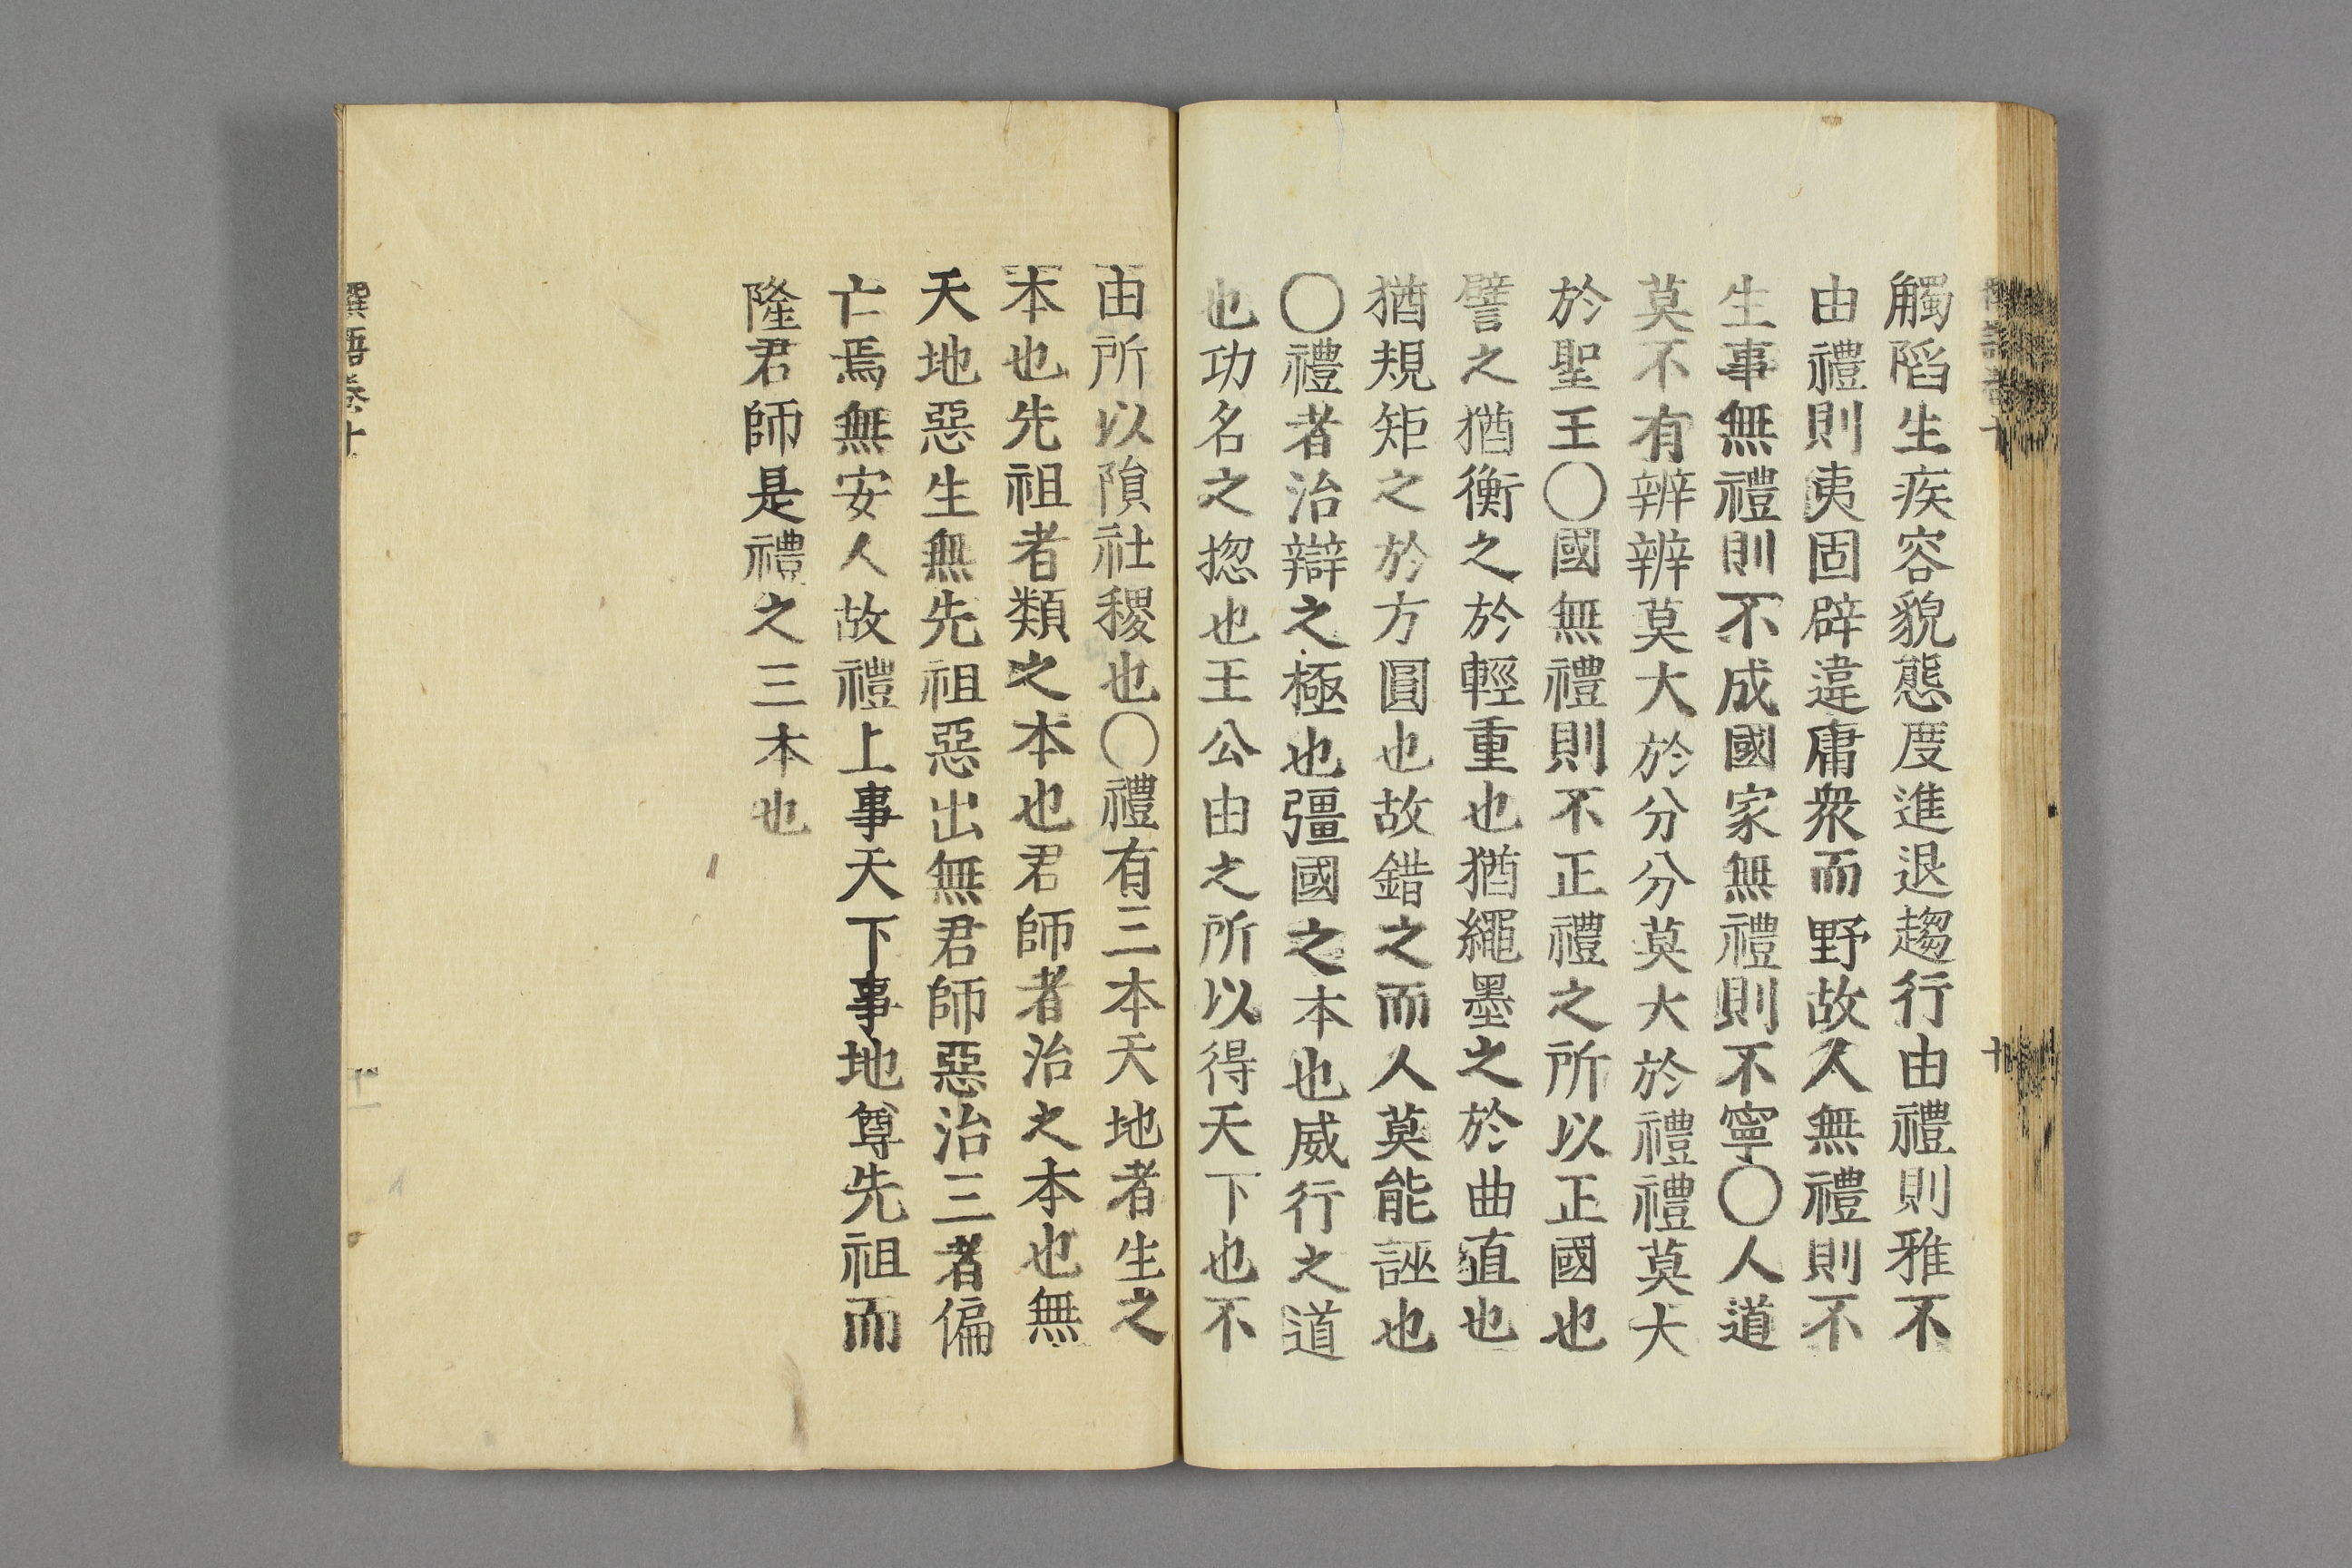 觸陷生疾容貌態度進退趨行由禮則雅不
由禮則夷固辟違庸衆而野故人無禮則不
生事無禮則不成國家無禮則不寧〇人道
莫不有辨辨莫大於分分莫大於禮禮莫大
於聖王〇國無禮則不正禮之所以正國也
譬之猶衡之於輕重也猶繩墨之於曲直也
猶規矩之於方圓也故錯之而人莫能誣也
〇禮者治辯之極也彊國之本也威行之道
也功名之揔也王公由之所以得天下也不
由所以隕社稷也〇禮有三本天地者生之
本也先祖者類之本也君師者治之本也無
天地惡生無先祖惡出無君師惡治三者偏
亡焉無安人故禮上事天下事地尊先祖而
隆君師是禮之三本也